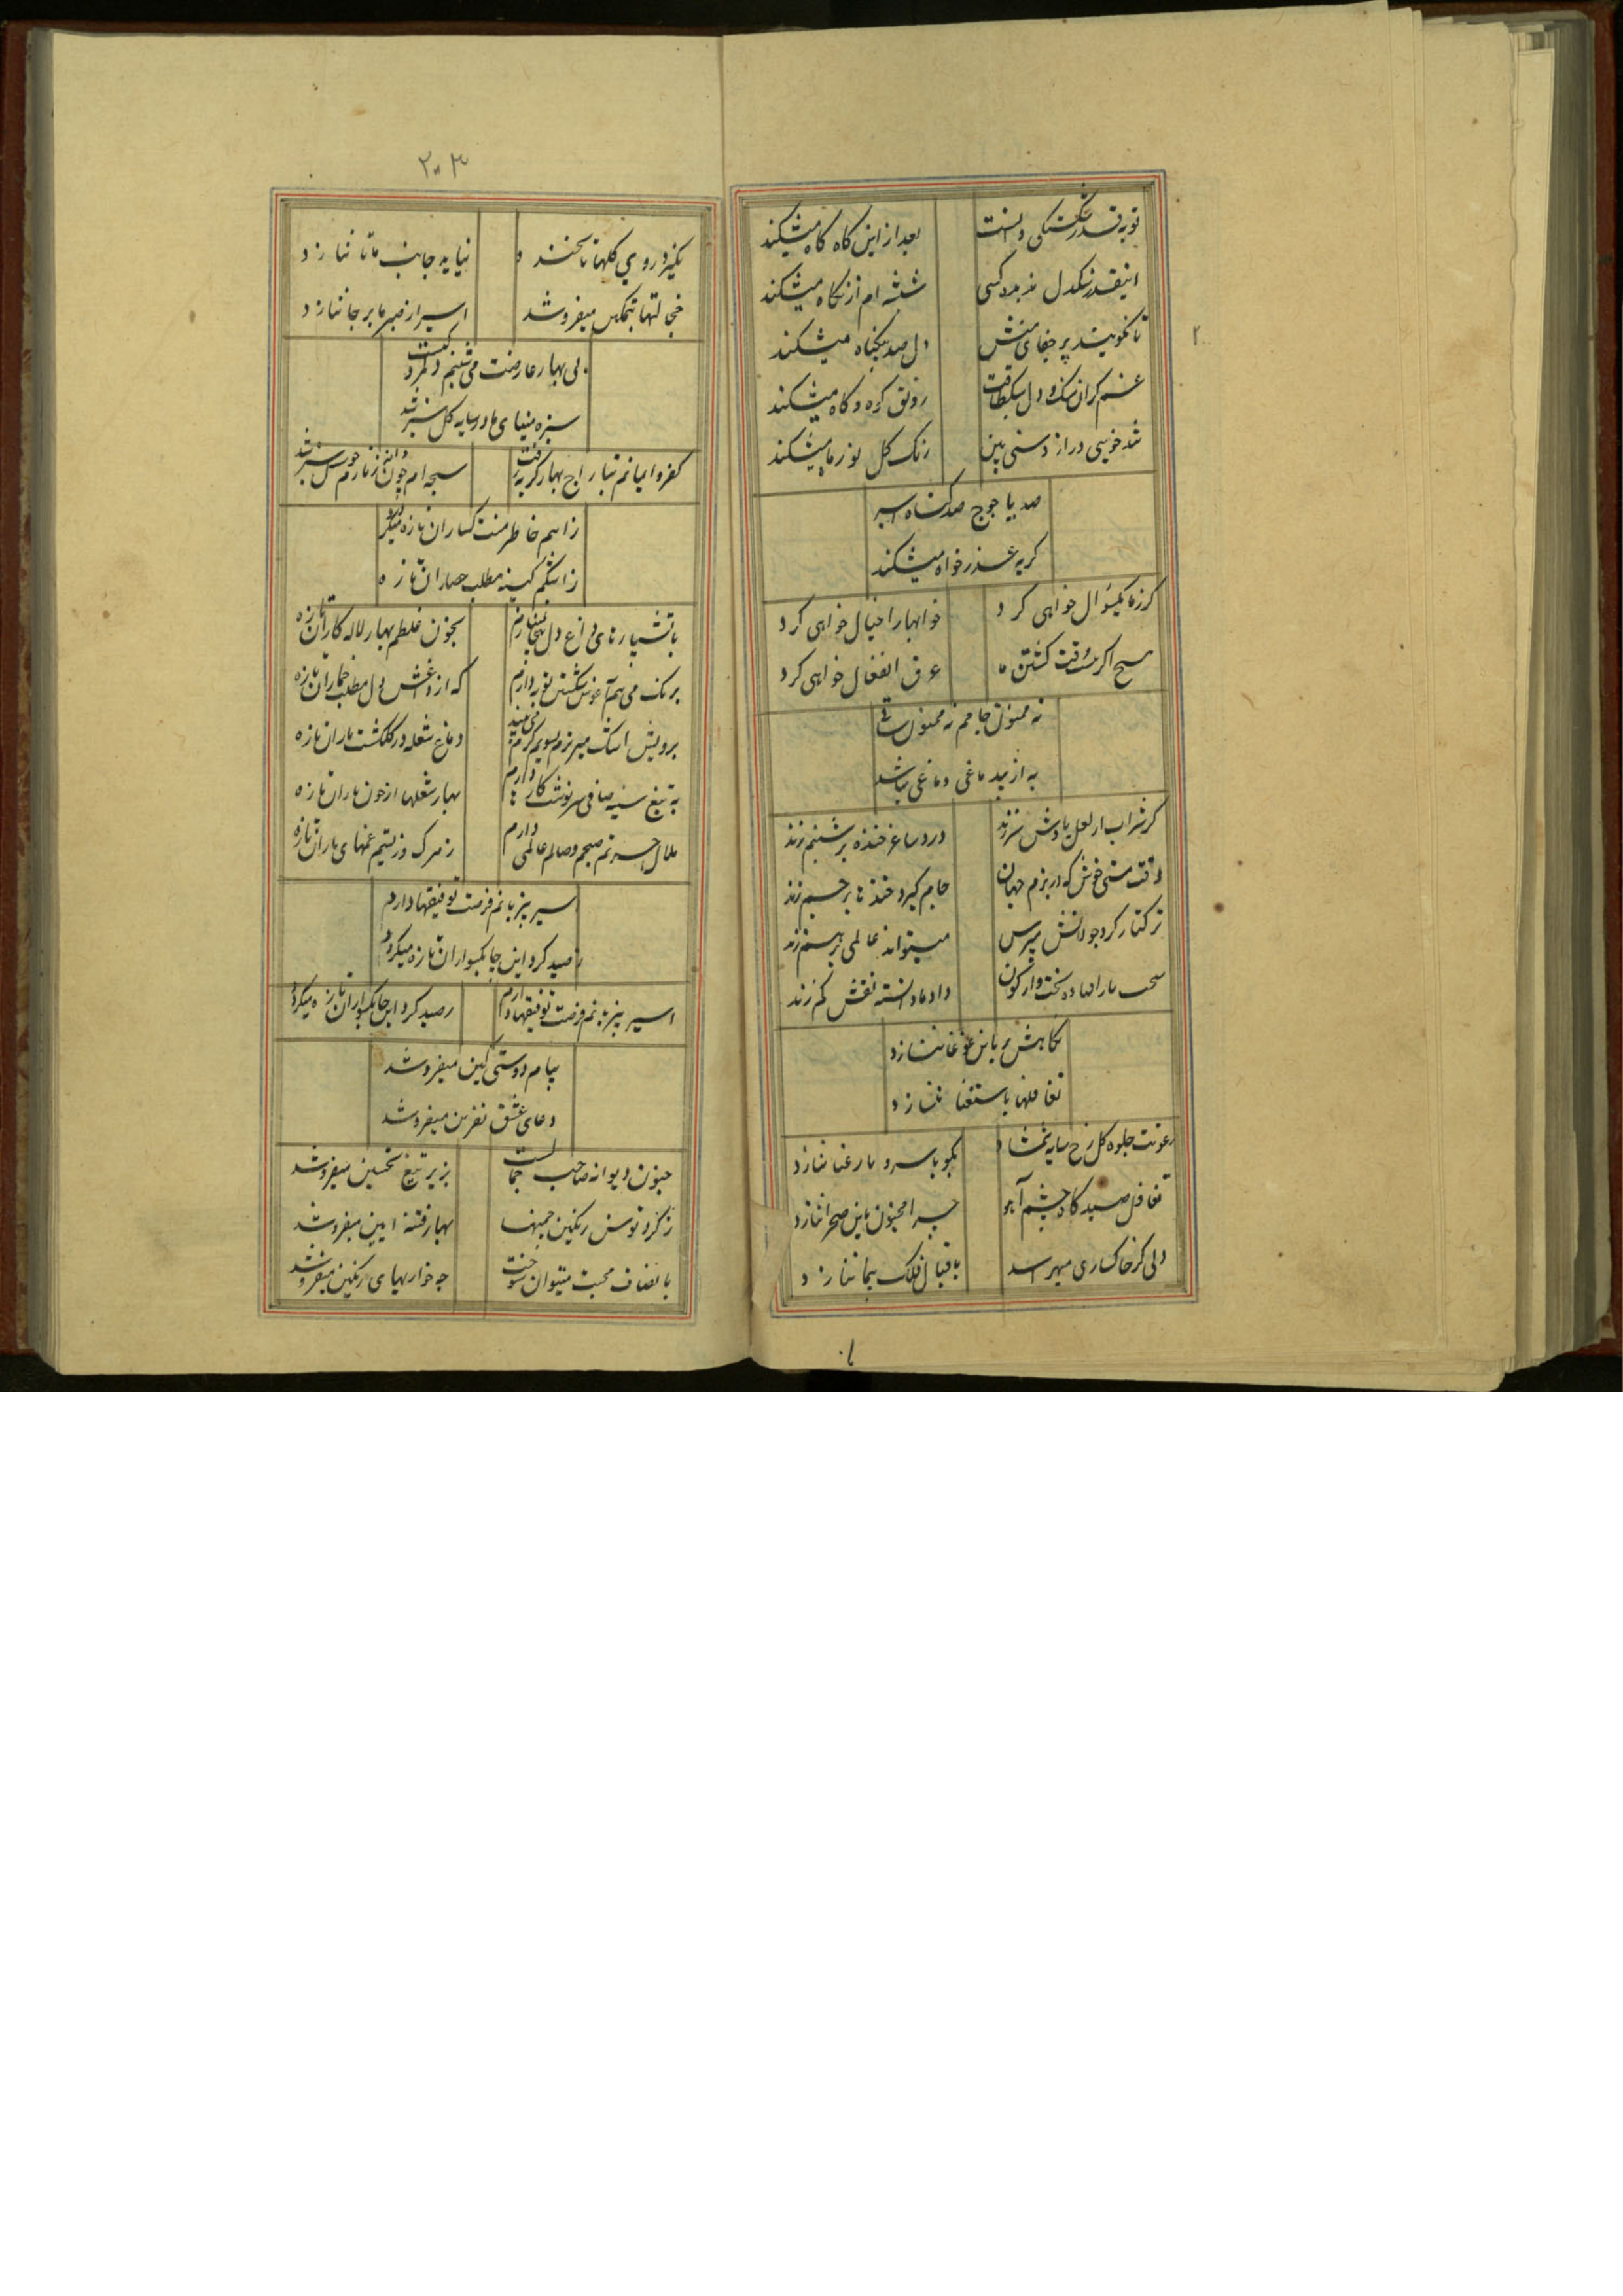 توبه قدر شکستگی دانست
بعد از این کاه کاه میشکند
اینقدر سنکدل ندیده کسی
شیشه ام از نکاه میشکند
تا نکویند پر جفای منش
دل صد بیکناه میشکند
غم کران سنک و دل سبکطاقت
رونق کوه و کاه میشکند
شد خوبی دراز دستی بین
رنک کل نوز ما میشکند
صد بیاجوج صد کناه اسیر
کریه عذر خواه میشکند
کر ز ما یکسؤال خواهی کرد
خوابها را خیال خواهی کرد
مسیح اکر مشرفت کشتن ما
عرق انفعال خواهی کرد
نه ممنون جامم نه ممنون ساقی
به از بیدماغی دماغی نباشد
کر شراب از لعل یادش سر زند
درد ساغر خنده بر شبنم زند
وقت مستی خوش که در بزم جهان
جام کیرد خنده ها بر جم زند
ترکتاز کرد جولانش مپرس
میتواند عالمی بر هم زند
سخت ما را داده بخت واژکون
داد ما دانسته نقش کم زند
نکاهش بر باین غوغا ننازد
تغافلها باستغنا ننازد
رعونت جلوه کل رخ سایه شمشاد
بکو با سرو یا رعنا ننازد
تغافل صید کاه چشم آهو
چرا مجنون باین صحرا ننازد
دلی کز خاکساری میهراسد
باقبال فلک پیما ننازد
۲۰۳
نکیرد روی کلها تا نخندد
نیاید جانب ما تا ننازد
خجالتها بتمکین میفروشد
اسیر از صبر ما بر جا ننازد
بی بهار عارضت می شبنم و کلمرد کیست
سبزه مینای ما در سایه کل سبز شد
کفر و ایمانم بتاراج بهار کریه رفت
سبحه ام چون دانه زنارم چو سنبل سبز شد
زاسم خاطر منت کساران تازه میکردد
زاشکم کینه مطلب حصاران تازه
باتشپارهای داغ دل میخانه دارم
بخون غلطم بهار لاله کاران تازه
برنک می هم آغوش شکستن توبه دارم
که از داغش دل مطلب خماران تازه
برویش اشک میریزم بسویم کرم می بیند
دماغ شعله در کلکشت باران تازه
به تیغ سینه صافی سرنوشت کارها دارم
بهار شعلها از خون یاران تازه
ملال حسرتم صبحم وصالم عالمی دارم
ز مرک و زیستیم غمهای یاران تازه
اسیر پیر باشم فرصت توفیقها دارم
رصید کرد این چابکسواران تازه میکردد
اسیر پیر باشم فرصت توفیقها دارم
رصید کرد این چابکسواران تازه میکردد
پیام دوستی کین میفروشد
دعای عشق نفرین میفروشد
جنون دیوانه صاحب جمالست
بزیر تیغ تحسین میفروشد
ز کرد توسن رنکین جبینها
بهار فتنه آیین میفروشد
بانصاف محبت میتوان سوخت
چه خواریهای رنکین میفروشد